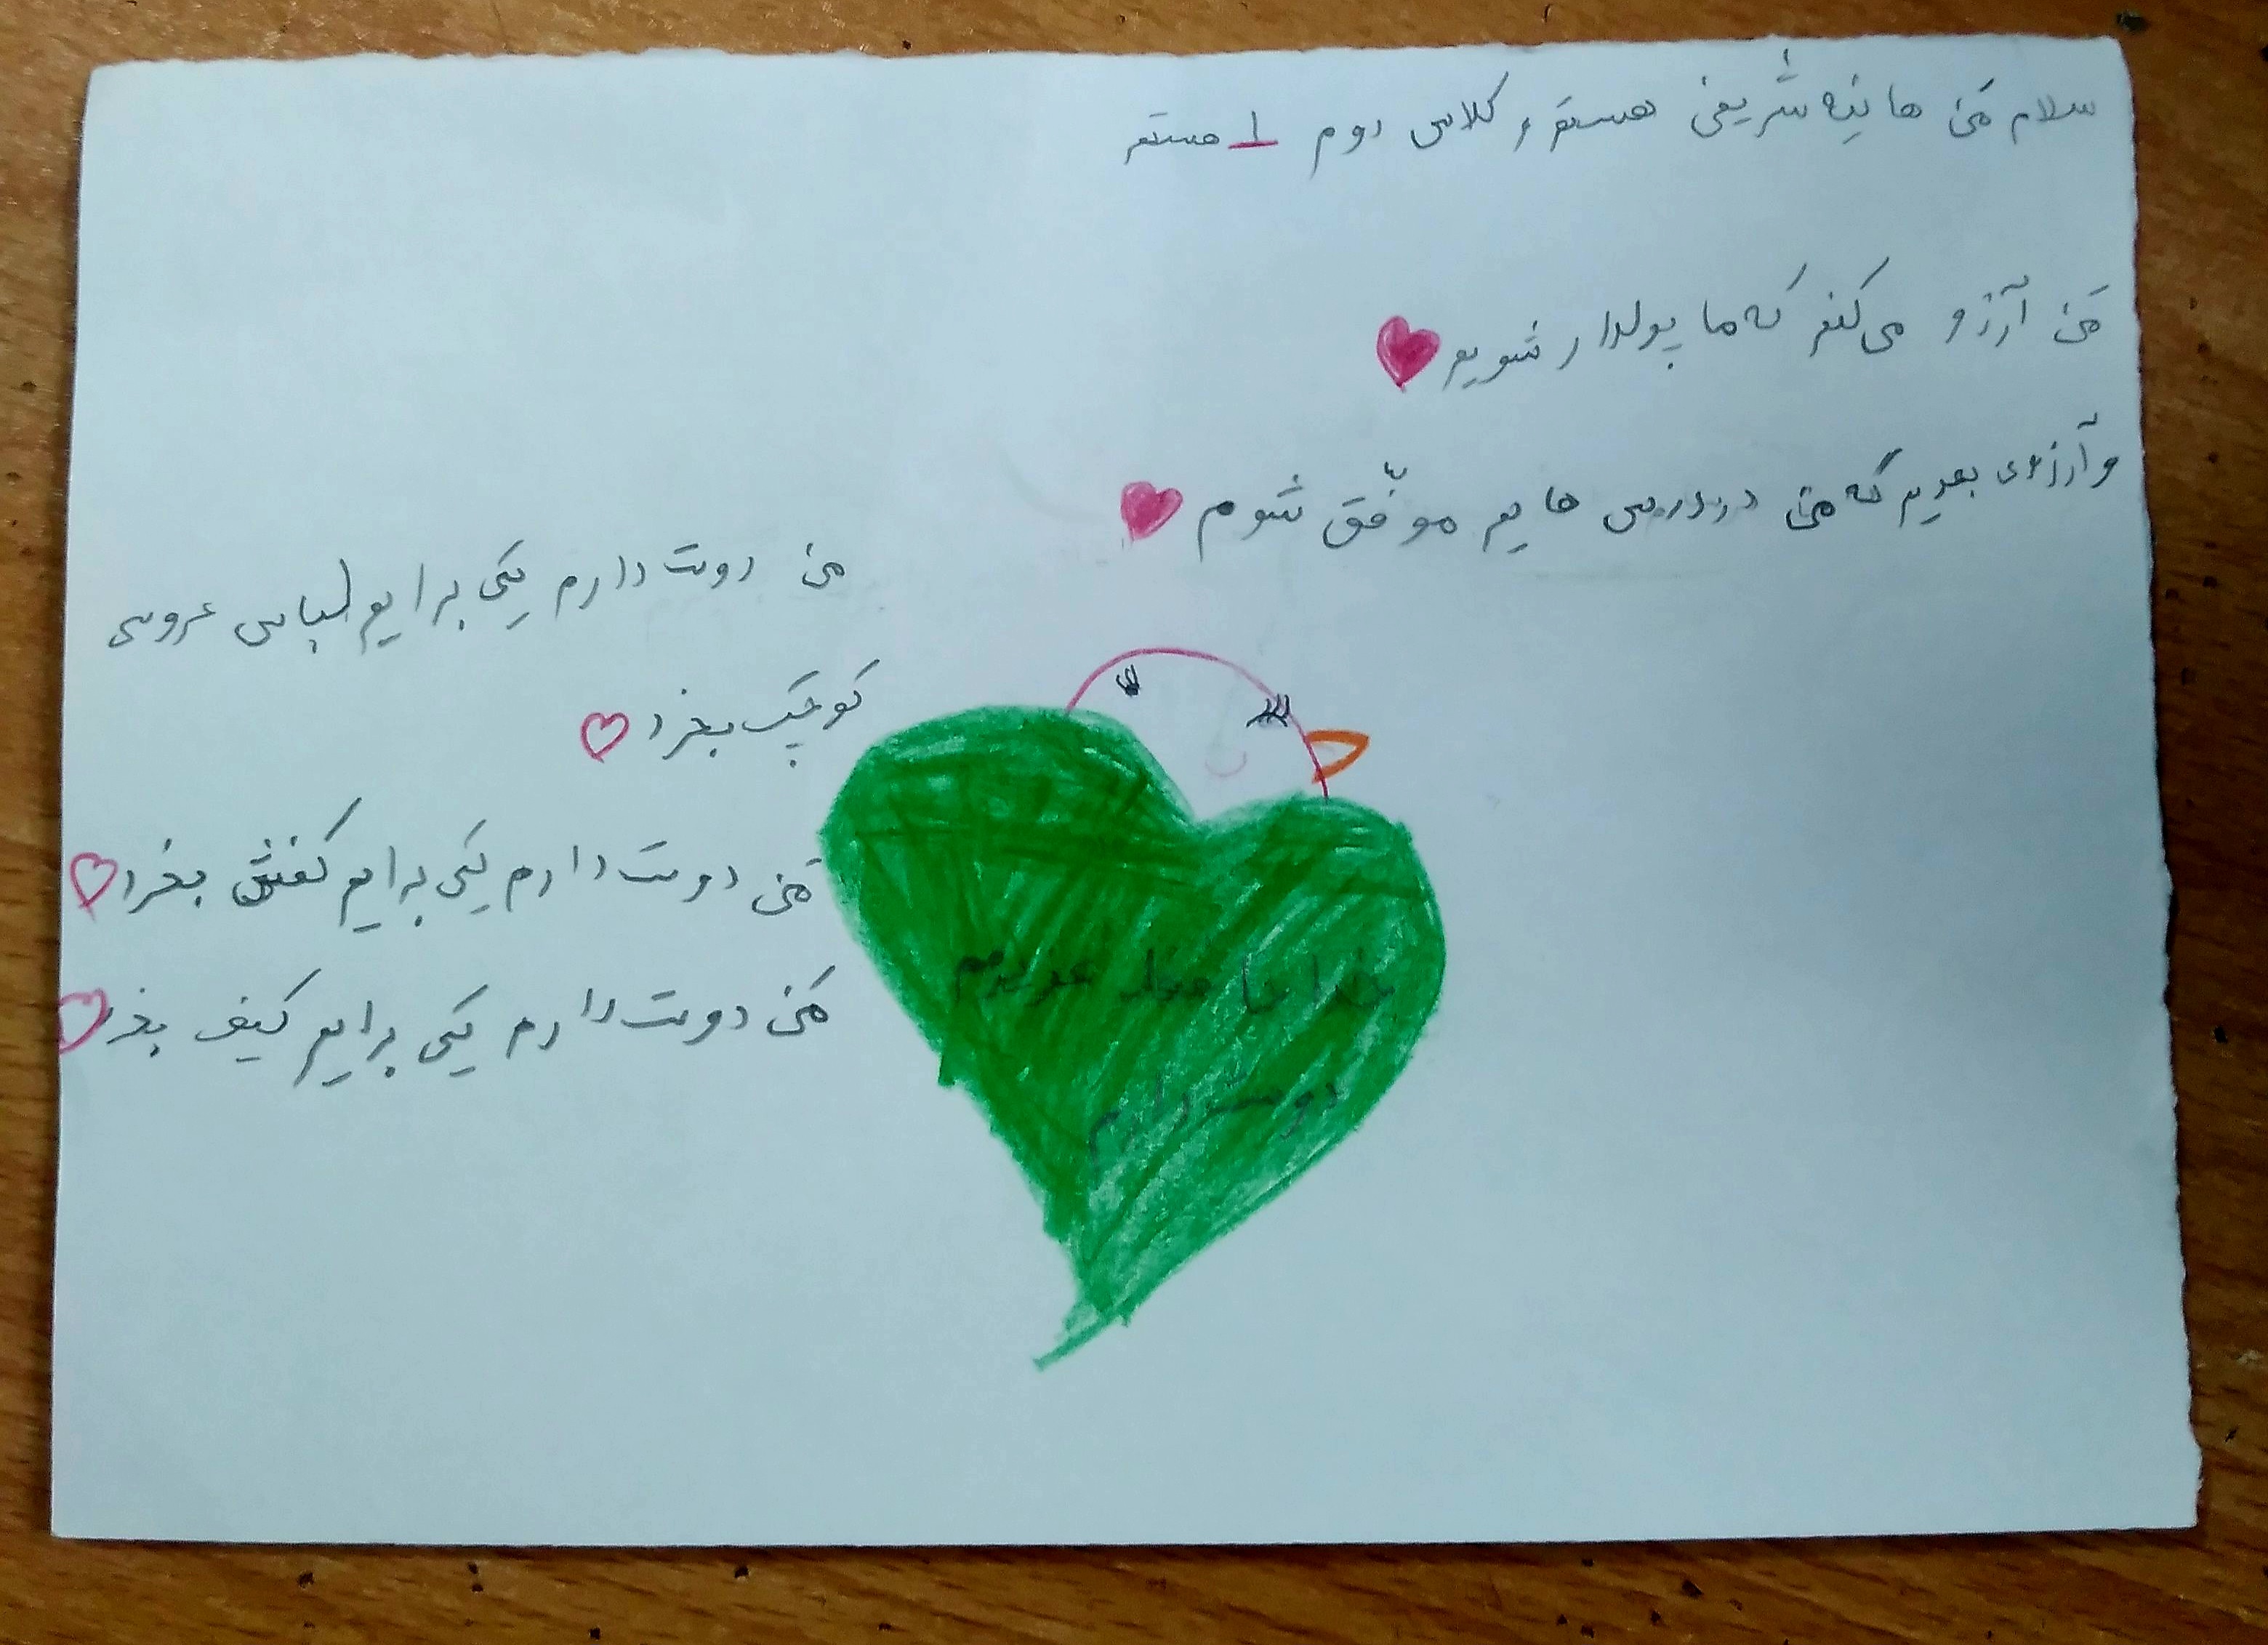 سلام مَن هانیه شریفی هستم و کلاس دوم 1 هستم
مَن آرزو می‌کنم که ما پولدار شویم
و آرزوی بعدیم که من در درس هایم موفّق شوم
من دوست دارم یکی برایم لباس عروسی
کوچک بخرد
مَن دوست دارم یکی برایم کفش بخرد
مَن دوست دارم یکی برایم کیف بخرد
خداحافظ عزیزم
دوست دارم